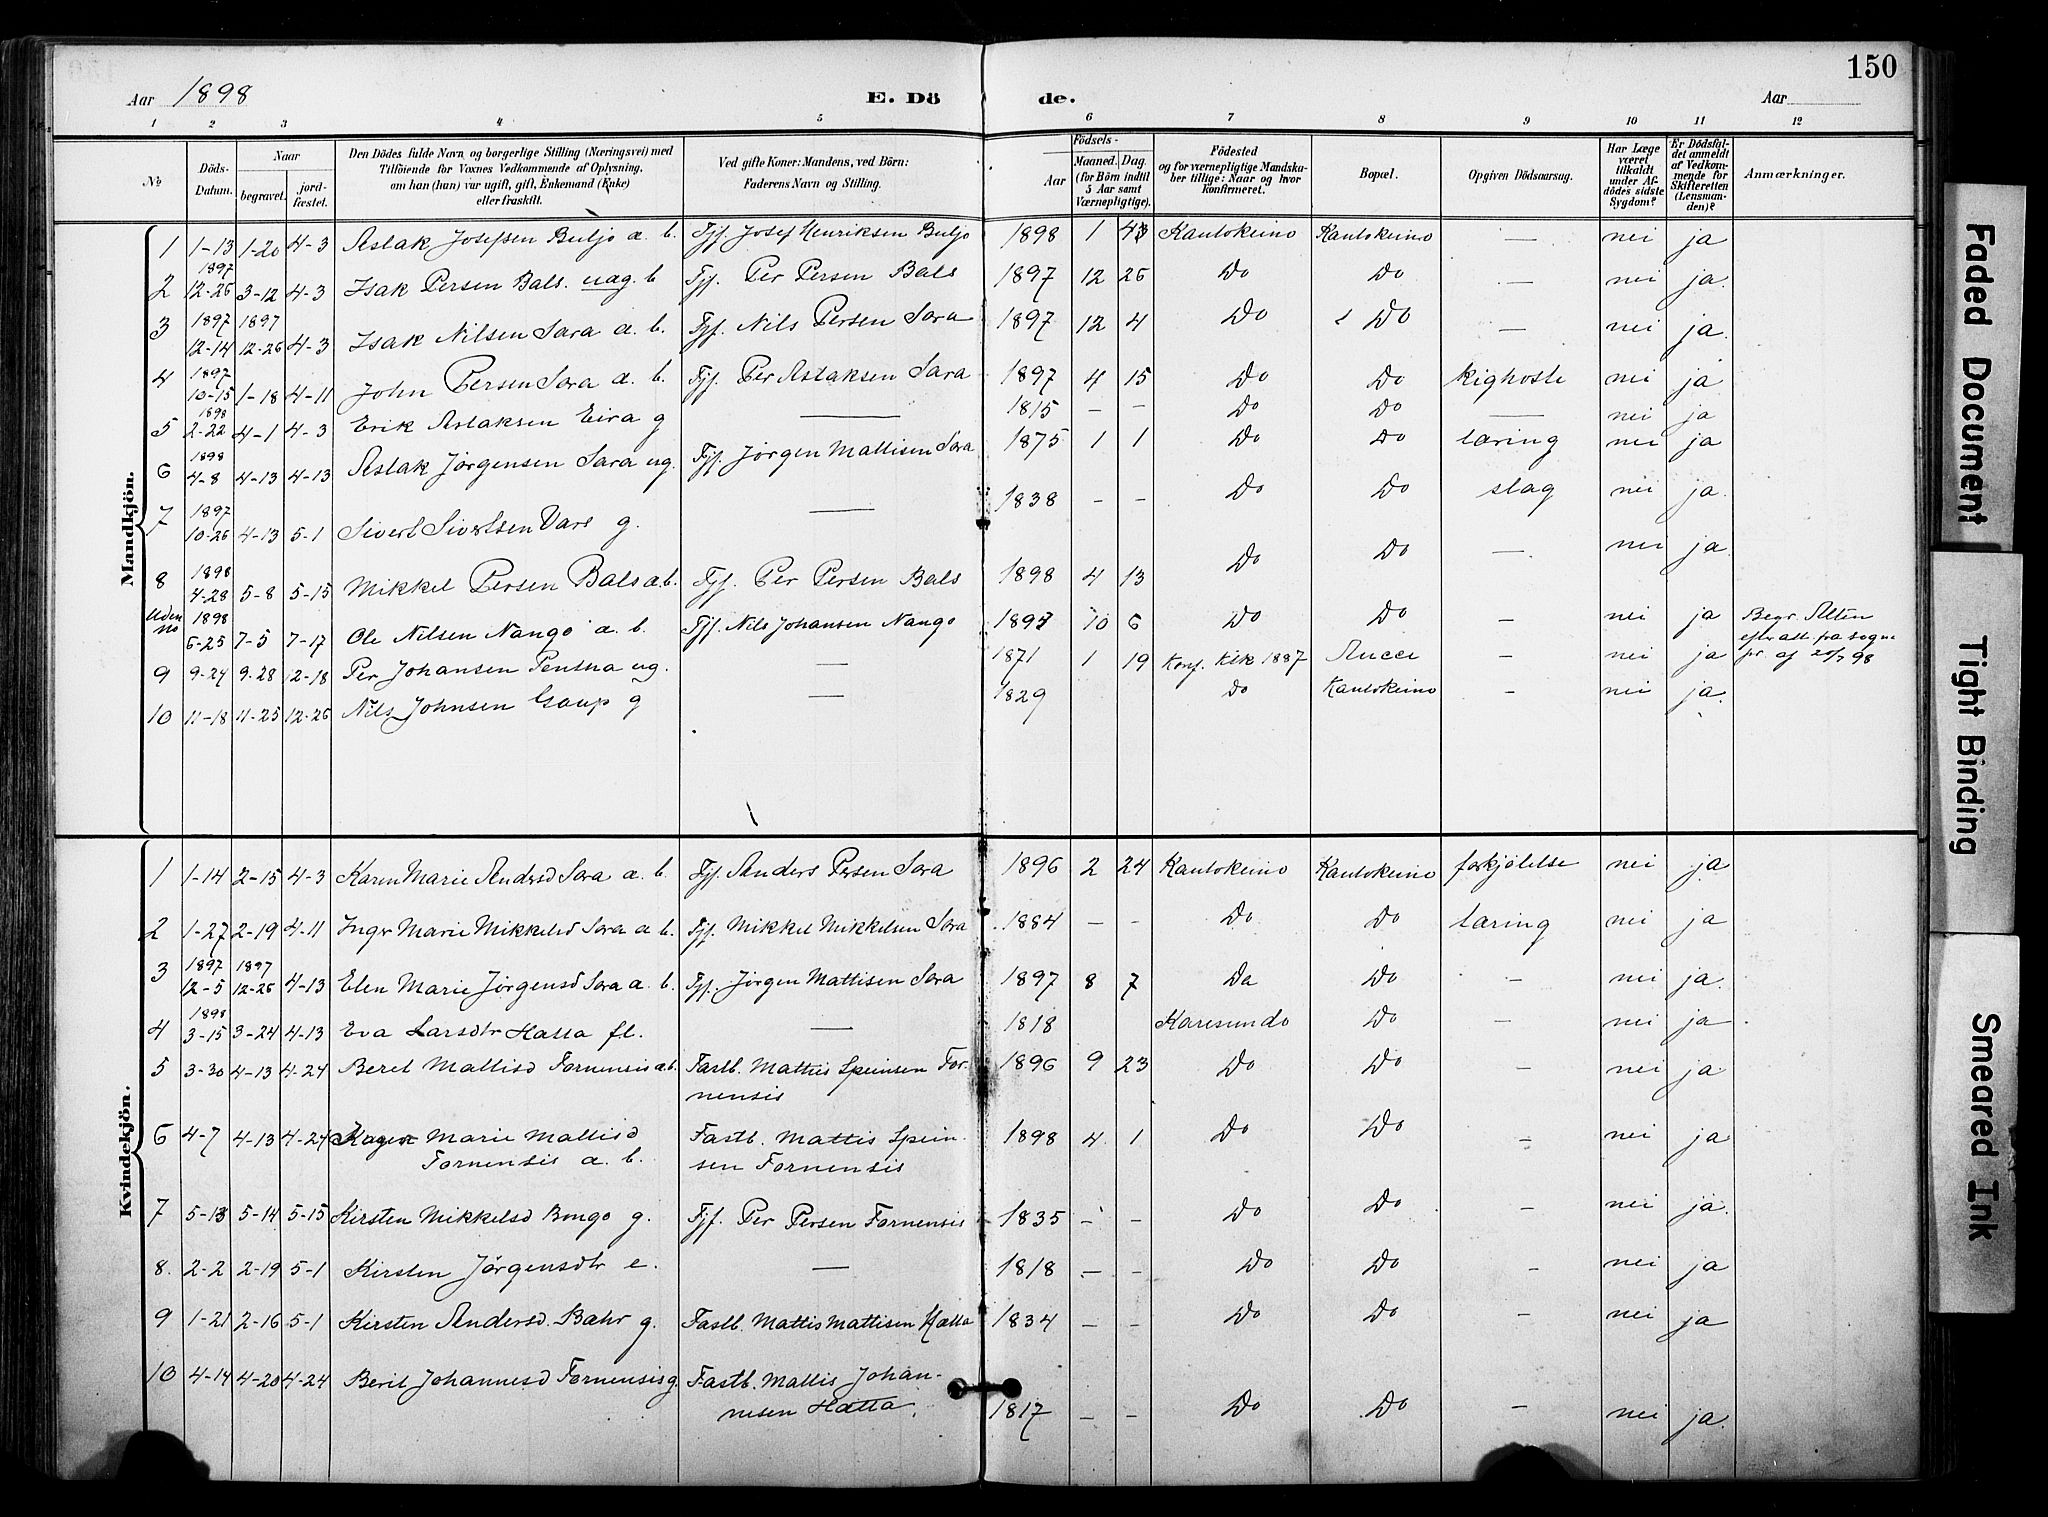 150
Aar 1898 E. Dö de. Aar
1 2 3 4 5 6 7 8 9 10 11 12
No Döds-Datum. Naar begravet. jord-fæstet. Den Dödes fulde Navn og borgerlige Stilling (Næringsvei) med Tilföiende for Voxnes Vedkommende af Oplysning, om han (hun) var ugift, gift, Enkemand (Enke) eller fraskilt. Ved gifte Koner: Mandens, ved Börn: Faderens Navn og Stilling. Födsels- Aar Maaned. Dag. (for Börn indtil 5 Aar samt Værnepligtige). Födested og for værnepligtige Mandskaber tillige: Naar og hvor konfirmeret. Bopæl. Opgiven Dödsaarsag. Har Læge været tilkaldt under Afdödes sidste Sygdom? Er Dödsfaldet anmeldt af Vedkommende for Skifteretten (Lensmanden)? Anmærkninger.
Mandkjön.
1 1-13 1-20 4-3 Aslak Josefsen Buljo a. b. Fjf. Josef Henriksen Buljo 1898 1 Kautokeino Kautokeino — nei ja
2 1897 12-26 3-12 4-3 Isak Persen Bals. uæg. b Fjf. Per Persen Bals 1897 12 26 Do Do — nei ja.
3 1897 12-14 1897 12-26 4-3 Isak Nilsen Sara a. b. Fjf. Nils Persen Sara 1897 12 4 Do Do — nei ja.
4 1897 10-15 1-18 4-11 John Persen Sara a. b. Fjf. Per Aslaksen Sara 1897 4 15 Do Do kighoste nei ja
5 1898 2-22 4-1 4-3 Erik Aslaksen Eira g — 1815 - - Do Do — nei ja
6 1898 4-8 4-13 4-13 Aslak Jörgensen Sara ug. Fjf. Jörgen Mattisen Sara 1875 1 1 Do Do tæring nei ja
7 1897 10-26 4-13 5-1 Sivert Sivertsen Vars g. — 1838 - - Do Do slag nei ja.
8 1898 4-28 5-8 5-15 Mikkel Persen Bals a. b. Fjf. Per Persen Bals 1898 4 13 Do Do — nei ja.
Uden no 1898 6-25 7-5 7-17 Ole Nilsen Nango a. b. Fjf. Nils Johansen Nango 10 6 Do Do - nei ja Begr. Alten
efter att. fra sogne
pr. af 20/7 98
9 9-24 9-28 12-18 Per Johansen Pentha ug. — 1871 1 19 Konf. Ktk 1887 Aucce - nei ja
10 11-18 11-25 12-26 Nils Johnsen Gaup g — 1829 Do Kautokeino - nei ja.
Kvindekjön.
1 1-14 2-15 4-3 Karen Marie Andersd Sara a. b. Fjf. Anders Persen Sara 1896 2 24 Kautokeino Kautokeino forkjölelse nei ja
2 1-27 2-19 4-11 Inger Marie Mikkelsd Sara a. b. Fjf. Mikkel Mikkelsen Sara 1884 - - Do Do tæring nei ja
3 1897 12-5 1897 12-26 4-13 Elen Marie Jörgensd Sara a. b. Fjf. Jörgen Mattisen Sara 1897 8 7 Do Do - nei ja.
4 1898 3-15 3-24 4-13 Eva Larsdtr Hatta fl. — 1818 Karesundo Do - nei ja
5 3-30 4-13 4-24 Beret Mattisd Fornensis a. b. Fastb. Mattis Speinsen For-
nensis 1896 9 23 Do Do - nei ja.
6 4-7 4-13 4-24 Karen Marie Mattisd
Fornensis a. b. Fastb. Mattis Spein-
sen Fornensis 1898 4 1 Do Do - nei ja
7 5-13 5-14 5-15 Kirsten Mikkelsd Bongo g. Fjf. Per Persen Fornensis 1835 - - Do Do - nei ja.
8. 2-2 2-19 5-1 Kirsten Jörgensdtr e. — 1818 - - Do Do - nei ja
9 1-21 2-16 5-1 Kirsten Andersd. Bahr g. Fastb. Mattis Mattisen Hætta 1834 - - Do Do - nei ja
10 4-14 4-20 4-24 Berit Johannesd Fornensis g. Fastb. Mattis Johan-
nesen Hætta 1817 - - Do Do - nei ja.
Faded Document
Tight Binding
Smeared Ink